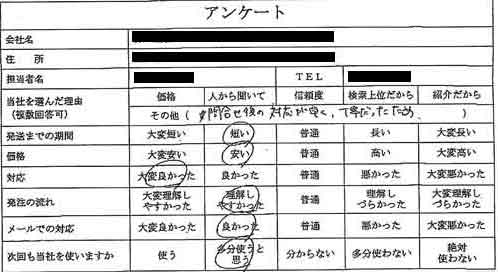 アンケート
会社名
住 所
担当者名 TEL
当社を選んだ理由 (複数回答可) 価格 人から聞いて 信頼度 検索上位だから 紹介だから
その他 ( 問合せ後の対応が早く、丁寧だったため )
発送までの期間 大変短い 短い 普通 長い 大変長い
価格 大変安い 安い 普通 高い 大変高い
対応 大変良かった 良かった 普通 悪かった 大変悪かった
発注の流れ 大変理解しやすかった 理解しやすかった 普通 理解しづらかった 大変理解しづらかった
メールでの対応 大変良かった 良かった 普通 悪かった 大変悪かった
次回も当社を使いますか 使う 多分使うと思う 分からない 多分使わない 絶対使わない